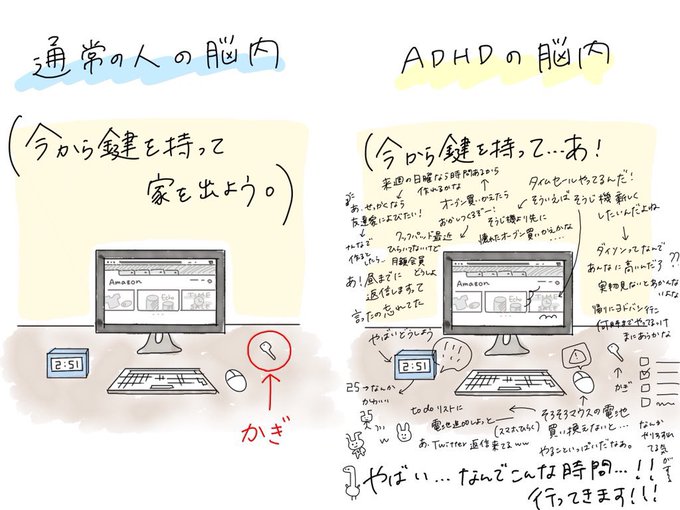 通常の人の脳内
(今から鍵を持って
家を出よう。)
Amazon
Edo
2:51
かぎ
ADHDの脳内
(今から鍵を持って…あ!
タイムセールやってるんだ!
そういえばそうじ機新しく
したいんだよね
ダイソンってなんで
あんなに高いんだろ
実物見ないとあかんな
帰りにヨドバシ行こ
まにあうかな
そうじ機より先に
壊れたオーブン買いかえかな
オーブン買いかえたら
おかしつくるぞー!
来週の日曜なら時間あるから
作れるかな
あ、せっかくなら
友達家によびたい!
クックパッド最近
ひらいてないけど
月額会員
どうしよ
あ!昼までに
返信しますって
言ったの忘れてた
やばいどうしよう
Amazon
2:51
25→なんか
かわいい
25
w
かぎ
そろそろマウスの電池
買い換えないと…
やることいっぱいだなあ。
(スマホひらく)
to do リストに
電池追加しよっと
あ、Twitter返信来てるww
なんか
やりわすれ
てる気
がする
やばい…なんでこんな時間…!!
行ってきます!!!